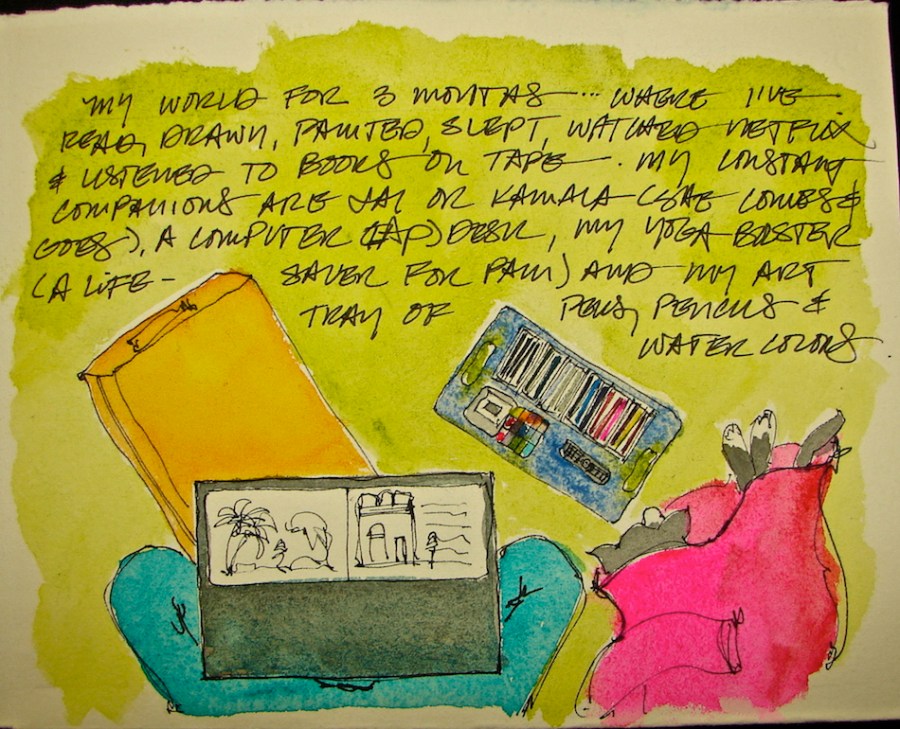 MY WORLD FOR 3 MONTHS... WHERE I'VE
READ, DRAWN, PAINTED, SLEPT, WATCHED NETFLIX
& LISTENED TO BOOKS ON TAPE. MY CONSTANT
COMPANIONS ARE JAI OR KAMALA (SHE COMES &
GOES), A COMPUTER (LAP) DESK, MY YOGA BOLSTER
(A LIFE- SAVER FOR PAIN) AND MY ART
TRAY OF PENS, PENCILS &
WATERCOLORS